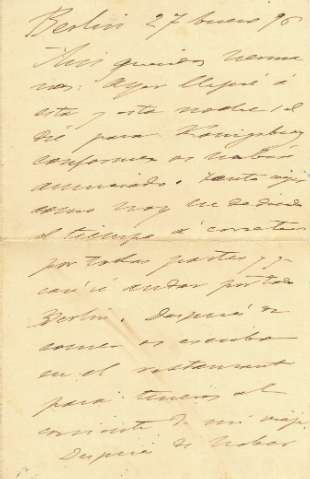 Berlin 27 Enero 96
Mis queridos herma
nos: Ayer llegué á
esta y esta noche
para Königsberg
conforme os había
anunciado. Tanto ayer
como hoy he dedicado
el tiempo á corretear
por todas partes y
andar por todo
Berlin. Después de
comer os escribo
en el restaurant
para teneros al
corriente de mi viaje
Después de haber